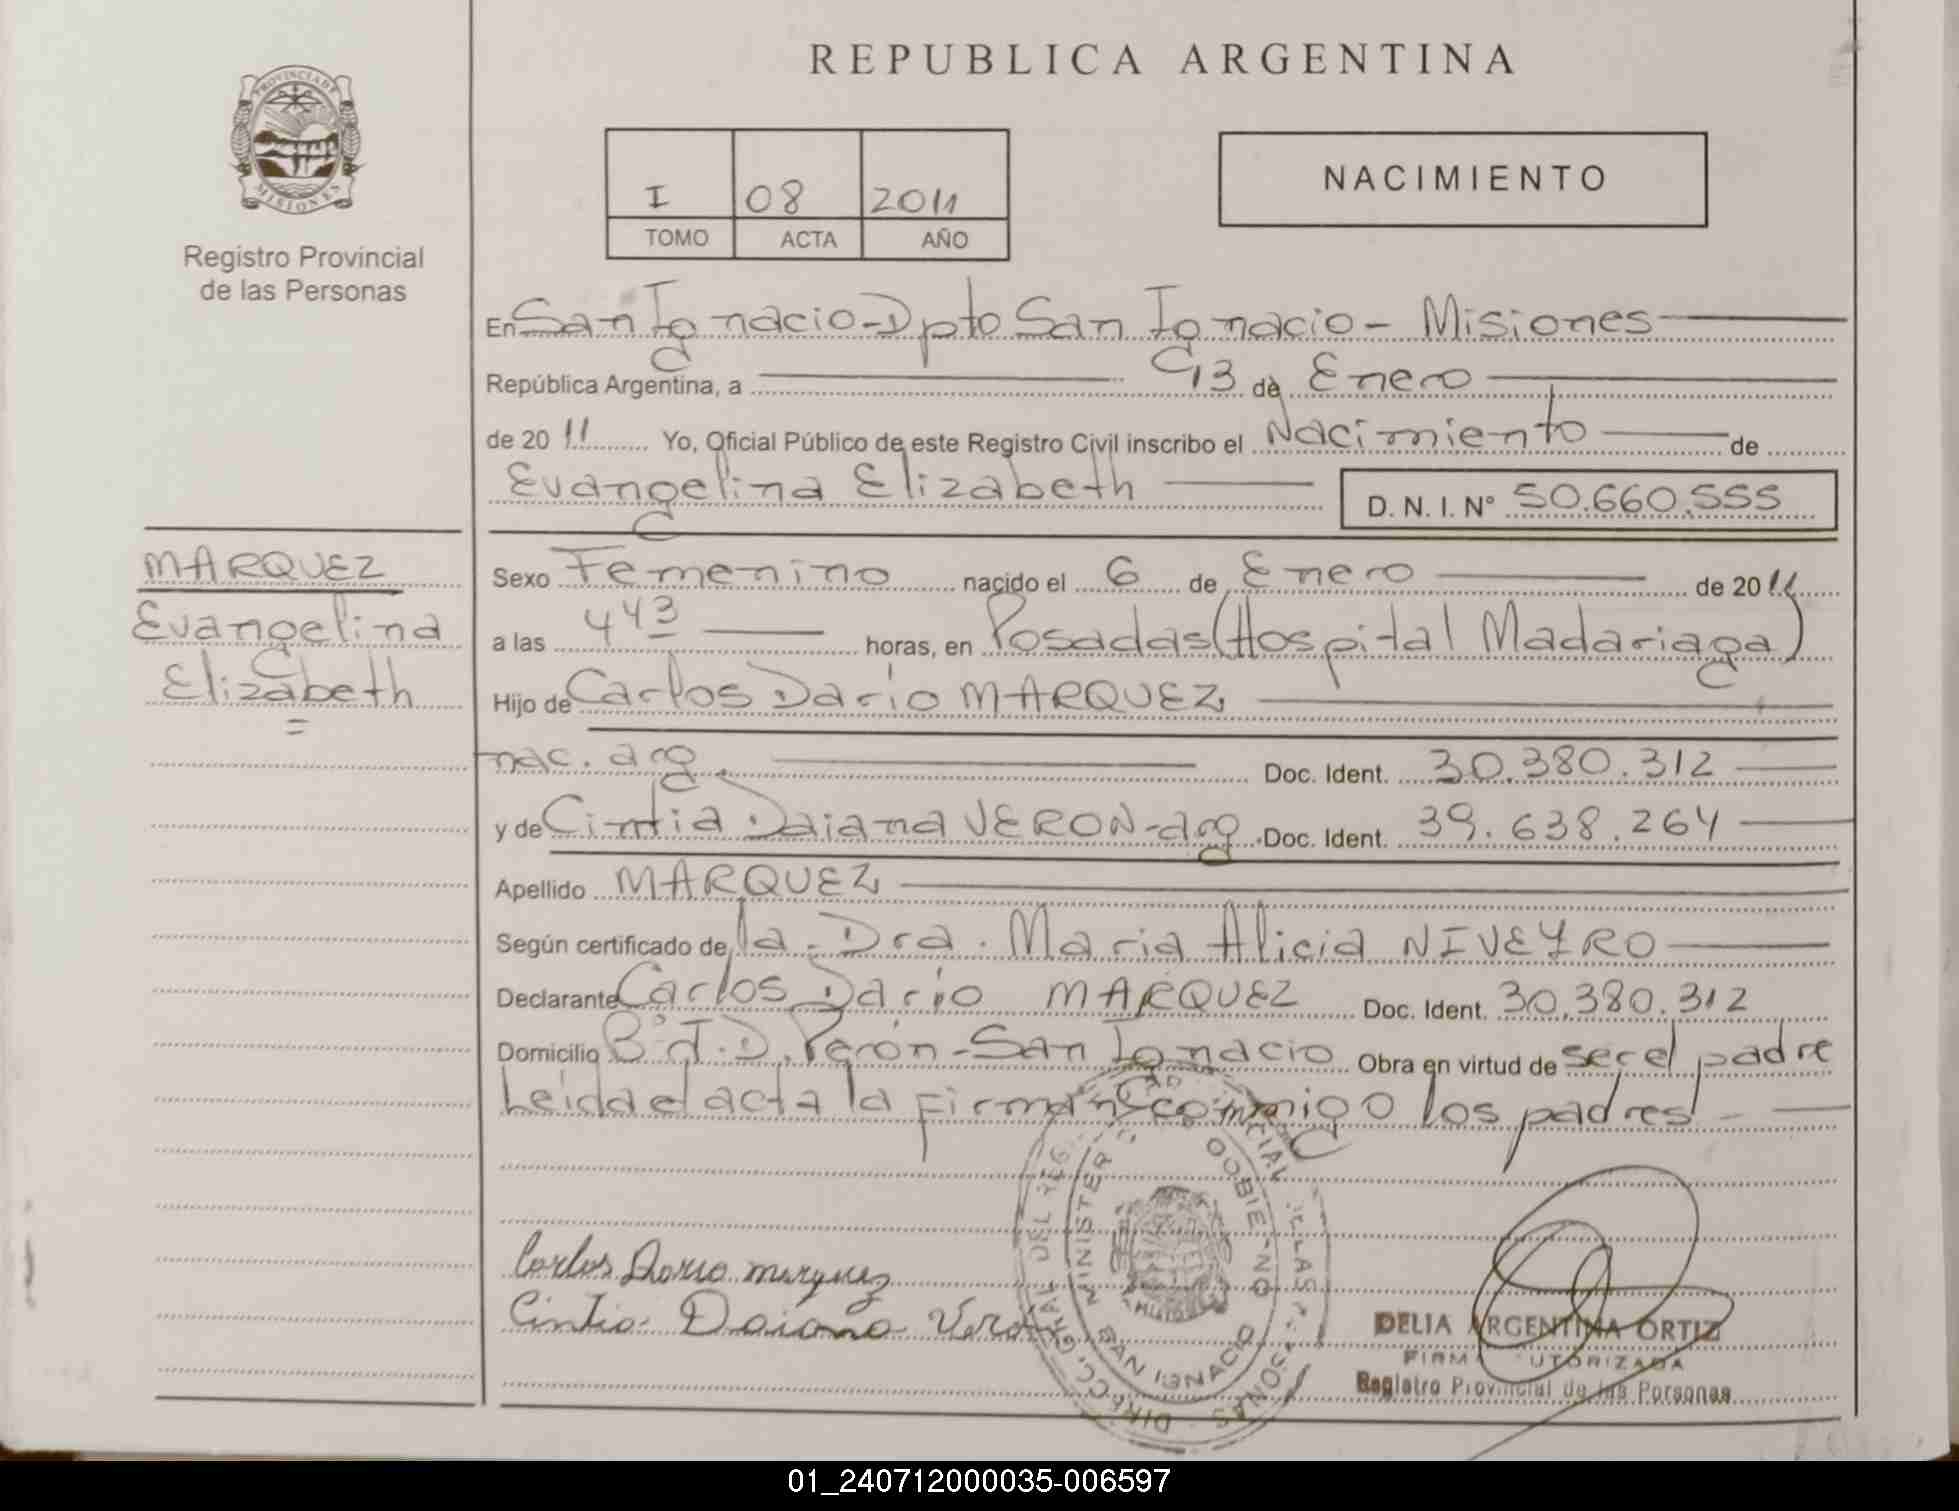 REPUBLICA ARGENTINA
PROVINCIA DE
MISIONES
Registro Provincial
de las Personas
I 08 2011
TOMO ACTA AÑO
NACIMIENTO
En San Ignacio-Dpto San Ignacio - Misiones
República Argentina, a 13 de Enero
de 20 11 Yo, Oficial Público de este Registro Civil inscribo el Nacimiento de
Evangelina Elizabeth D. N. I. N° 50.660.555
MARQUEZ
Evangelina
Elizabeth
Sexo Femenino nacido el 6 de Enero de 20 11
a las 4 43 horas, en Posadas (Hospital Madariaga)
Hijo de Carlos Dario MARQUEZ
nac. arg. Doc. Ident. 30.380.312
y de Cintia Daiana VERON-arg. Doc. Ident. 39.638.264
Apellido MARQUEZ
Según certificado de la Dra. Maria Alicia NIVEYRO
Declarante Carlos Dario MARQUEZ Doc. Ident. 30.380.312
Domicilio B° J.D. Perón-San Ignacio Obra en virtud de ser el padre
Leida el acta la firman conmigo los padres
Carlos Dario marquez
Cintia Daiana Veron
MINISTERIO GOBIERNO
SAN IGNACIO
DELIA ARGENTINA ORTIZ
FIRMA AUTORIZADA
Registro Provincial de las Personas
01_240712000035-006597